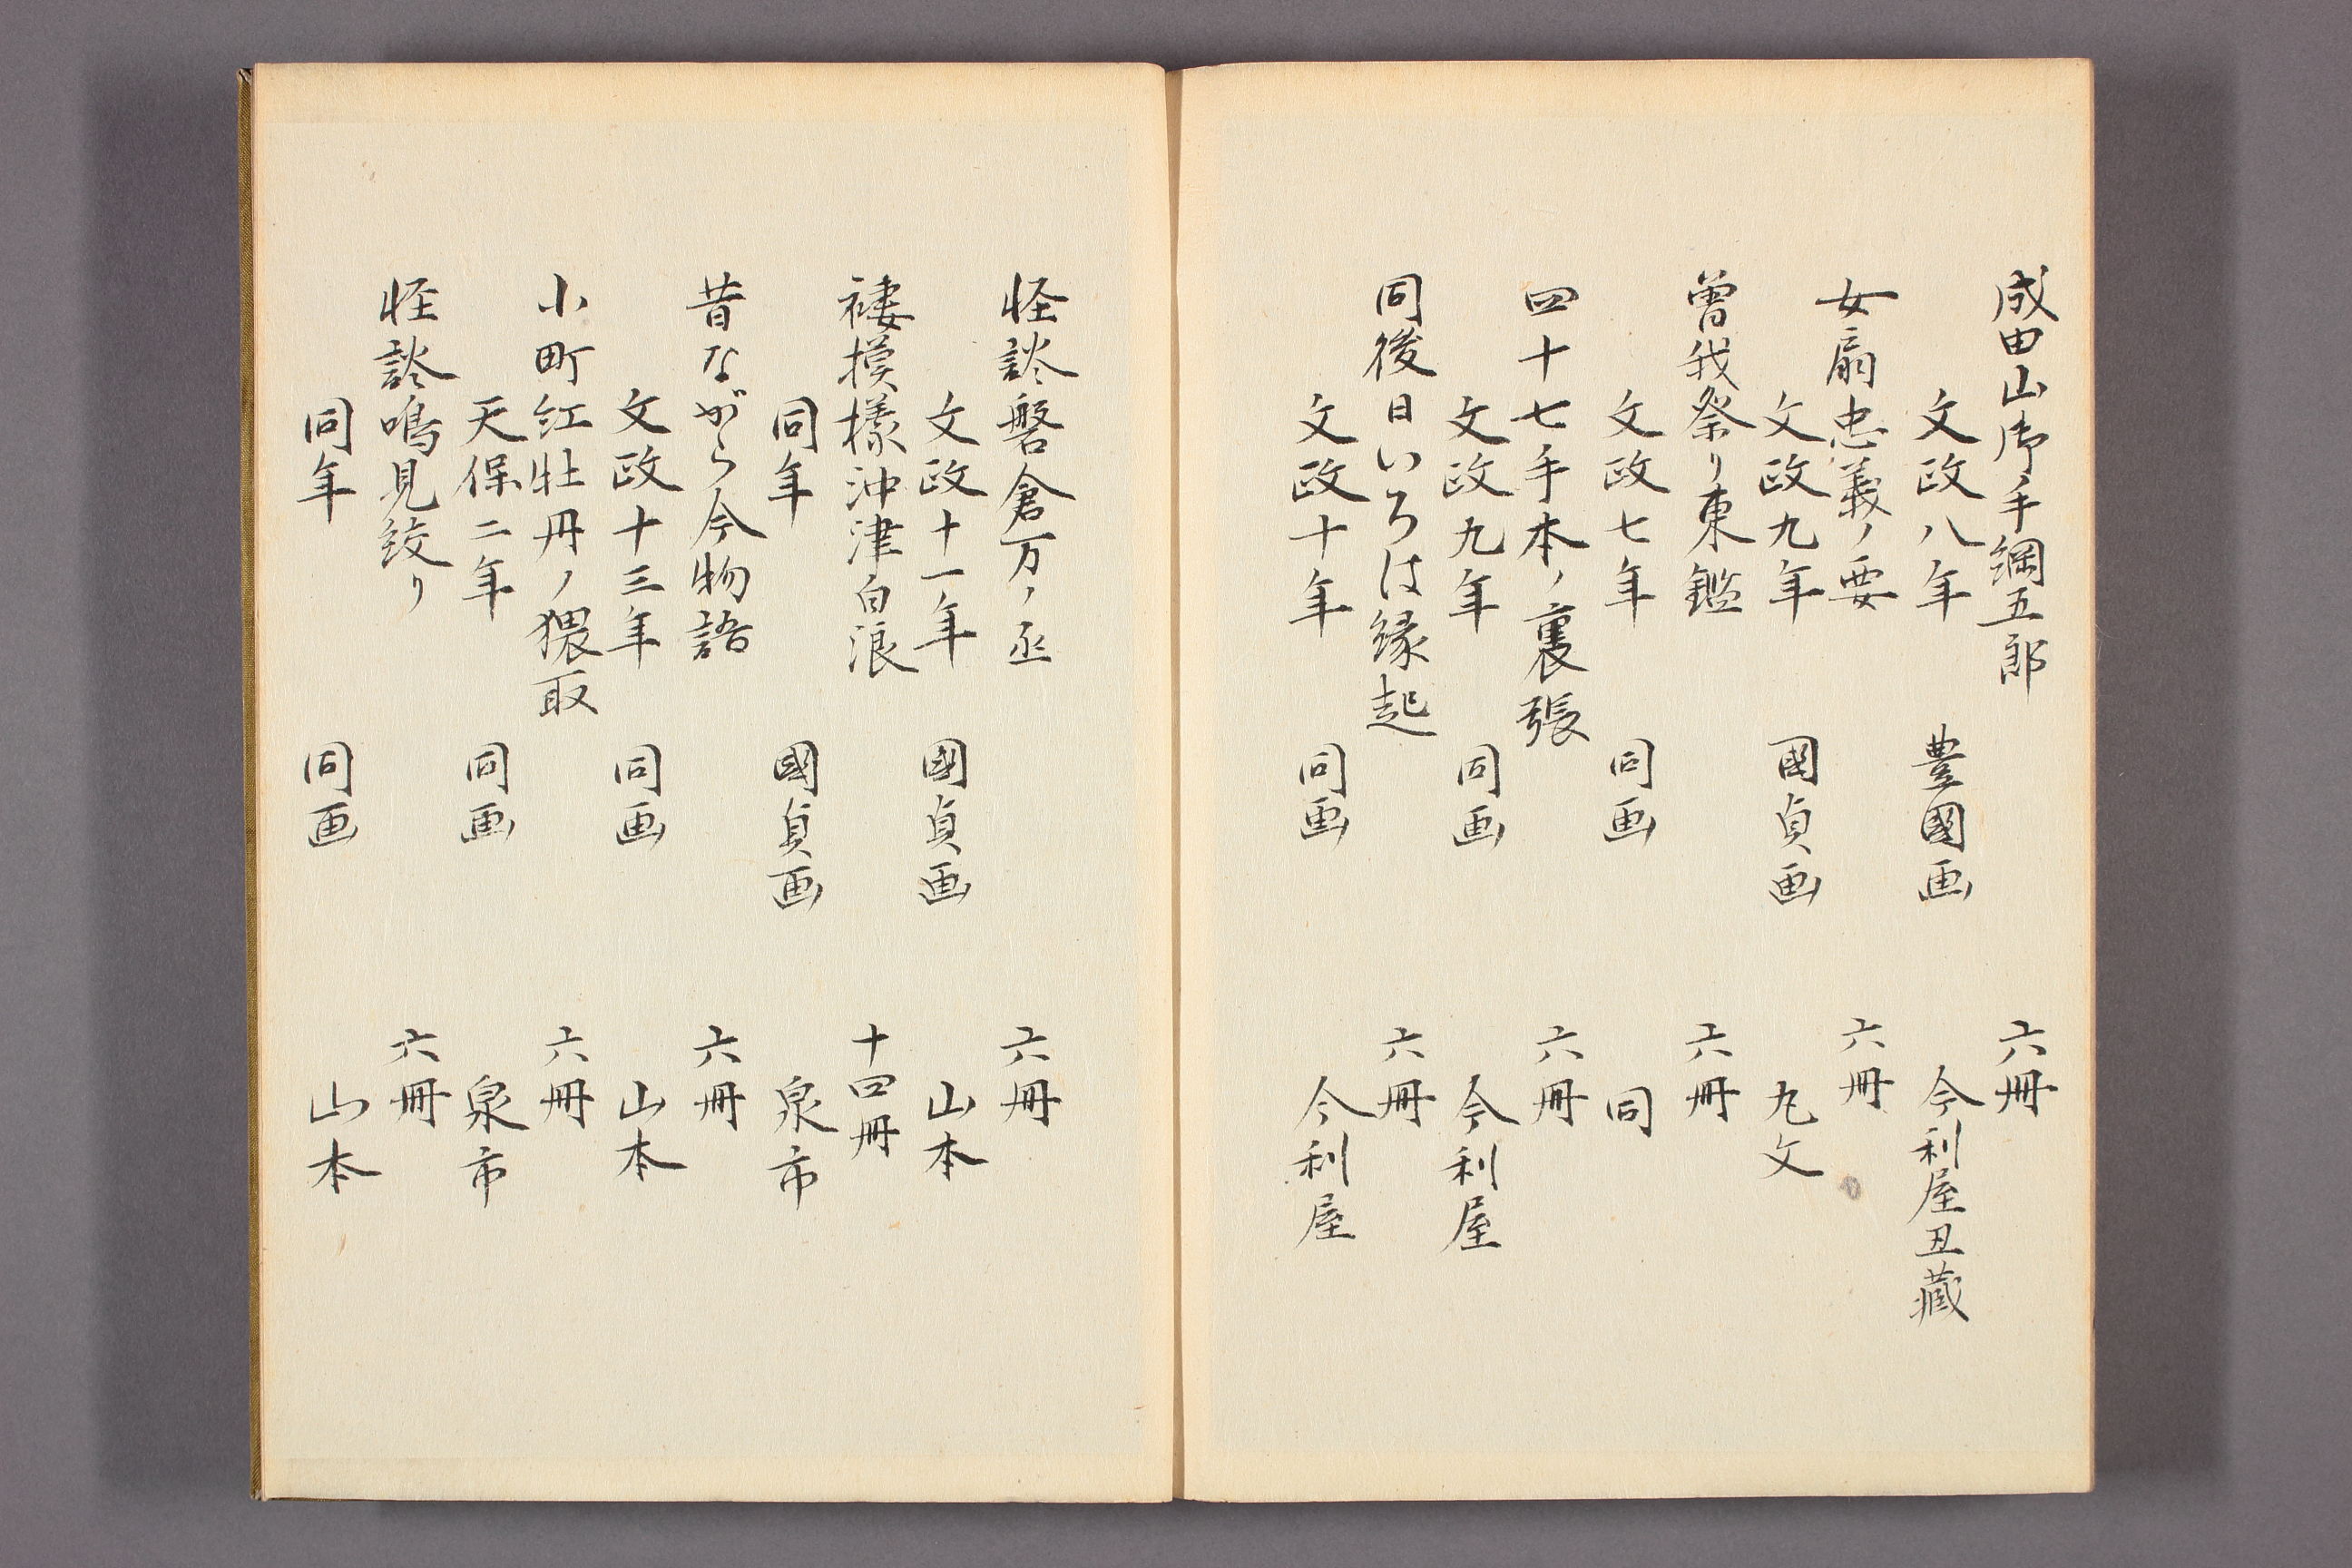 成田山御手綱五郎 六冊
文政八年 豊國画 今利屋丑藏
女扇忠義ノ要 六冊
文政九年 國貞画 丸文
曽我祭り東鑑 六冊
文政七年 同画 同
四十七手本ノ裏張 六冊
文政九年 同画 今利屋
同後日いろは縁起 六冊
文政十年 同画 今利屋
怪談磐倉万ノ丞 六冊
文政十一年 國貞画 山本
褄模様沖津白浪 十四冊
同年 國貞画 泉市
昔ながら今物語 六冊
文政十三年 同画 山本
小町紅牡丹ノ猥取 六冊
天保二年 同画 泉市
怪談鳴見絞り 六冊
同年 同画 山本